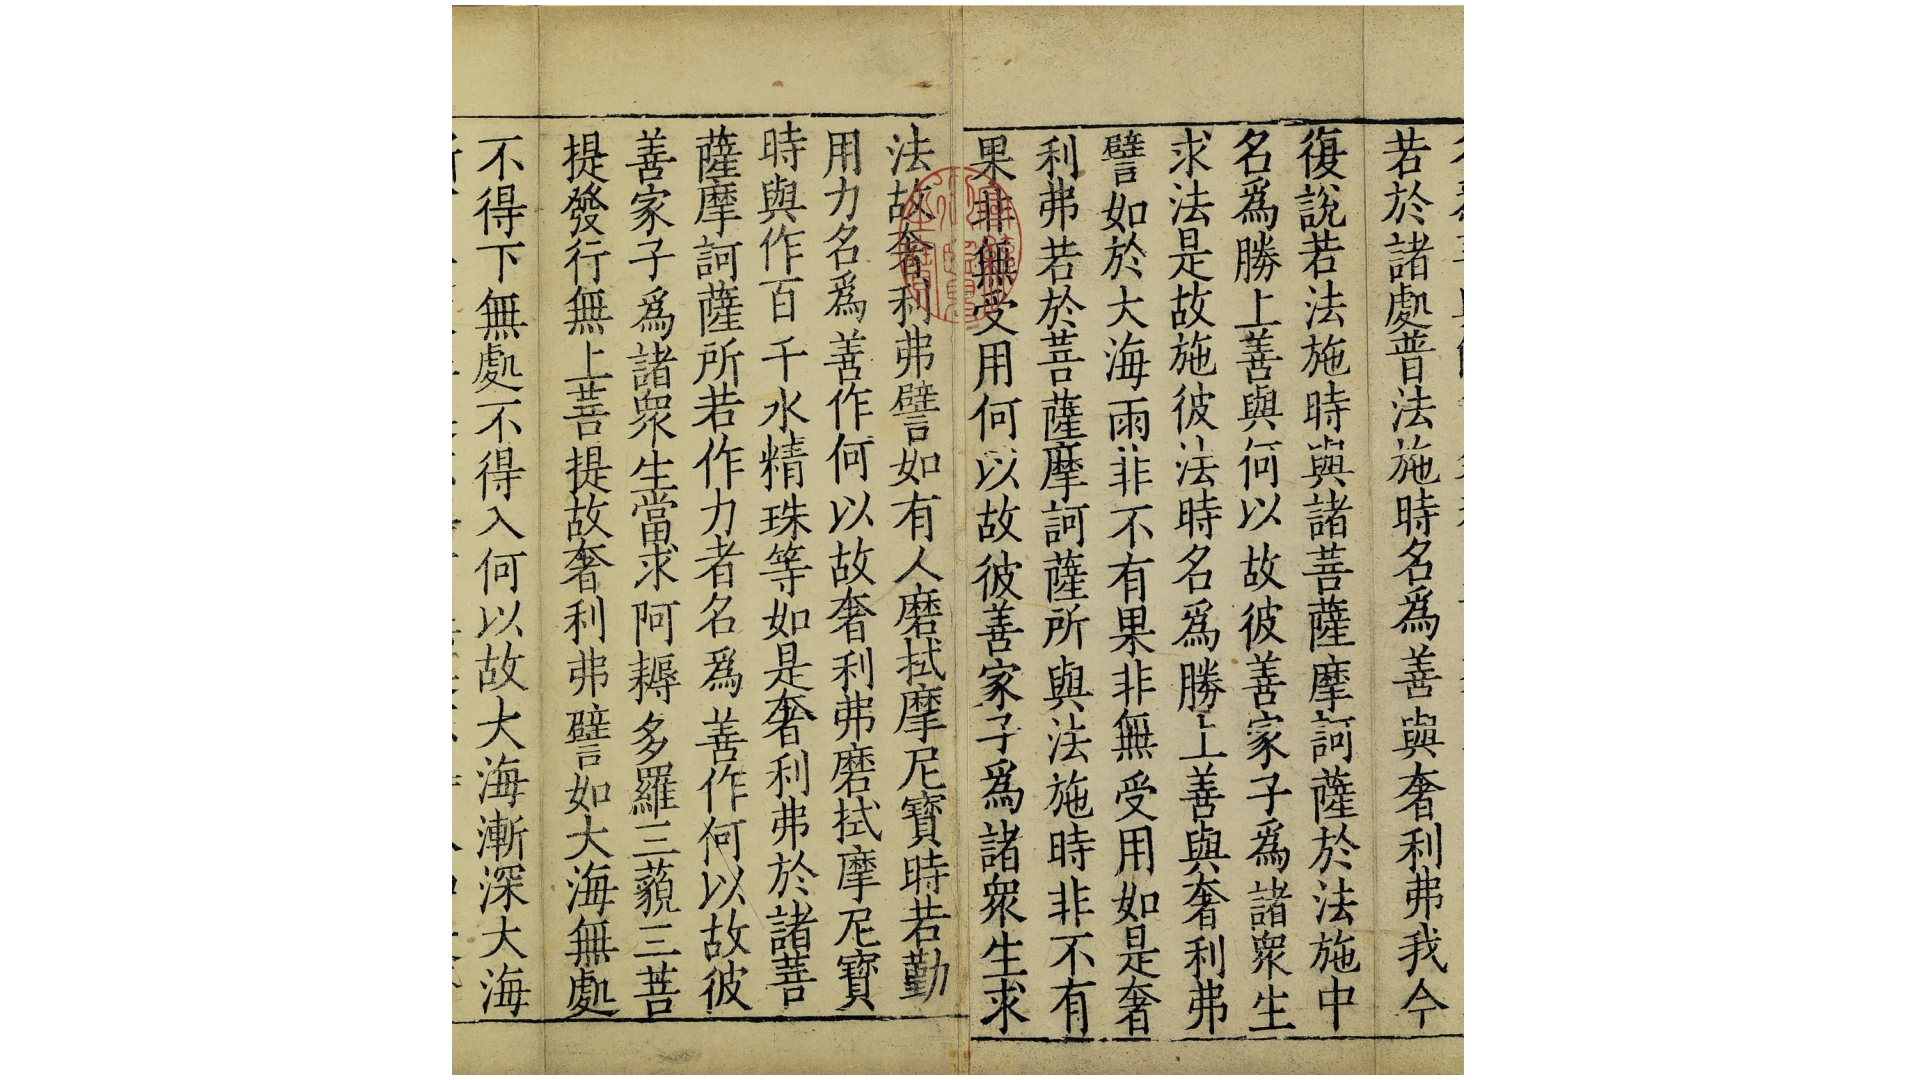 若於諸處普法施時名爲善與奢利弗我今
復說若法施時與諸菩薩摩訶薩於法施中
名爲勝上善與何以故彼善家子爲諸衆生
求法是故施彼法時名爲勝上善與奢利弗
譬如於大海雨非不有果非無受用如是奢
利弗若於菩薩摩訶薩所與法施時非不有
果非無受用何以故彼善家子爲諸衆生求
法故奢利弗譬如有人磨拭摩尼寶時若勤
用力名爲善作何以故奢利弗磨拭摩尼寶
時與作百千水精珠等如是奢利弗於諸菩
薩摩訶薩所若作力者名爲善作何以故彼
善家子爲諸衆生當求阿耨多羅三藐三菩
提發行無上菩提故奢利弗譬如大海無處
不得下無處不得入何以故大海漸深大海